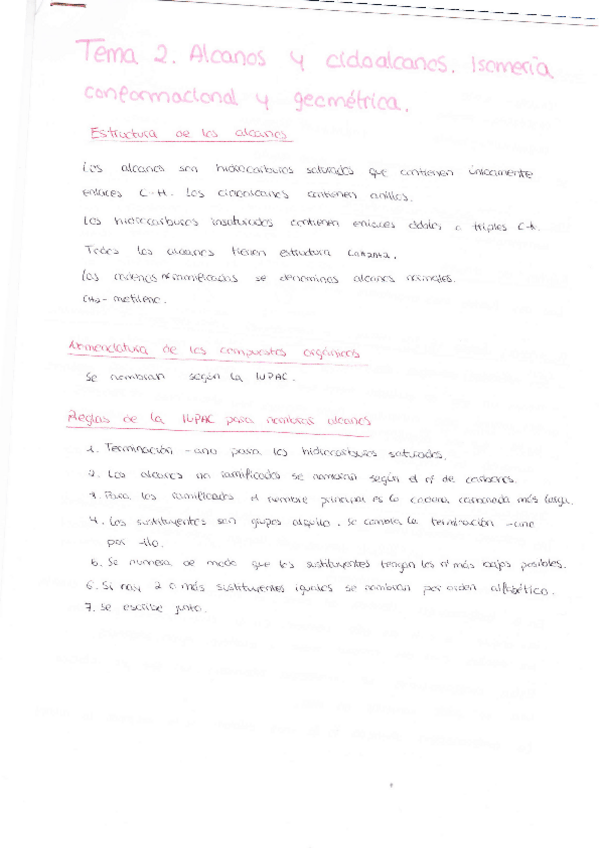 Tema 2. Alcanos y cicloalcanos. Isomería
conformacional y geométrica.
Estructura de los alcanos
Los alcanos son hidrocarburos saturados que contienen únicamente
enlaces C-H. Los cicloalcanos contienen anillos.
Los hidrocarburos insaturados contienen enlaces dobles o triples C-H.
Todos los alcanos tienen estructura CnH2n+2.
Las cadenas no ramificadas se denominan alcanos normales.
CH2- metileno.
Nomenclatura de los compuestos orgánicos
Se nombran según la IUPAC.
Reglas de la IUPAC para nombrar alcanos
1. Terminación -ano para los hidrocarburos saturados.
2. Los alcanos no ramificados se nombran según el nº de carbonos.
3. Para los ramificados el nombre principal es la cadena carbonada más larga.
4. Los sustituyentes son grupos alquilo. Se cambia la terminación -ano
por -ilo.
5. Se numera de modo que los sustituyentes tengan los nº más bajos posibles.
6. Si hay 2 o más sustituyentes iguales se nombran por orden alfabético.
7. Se escribe junto.